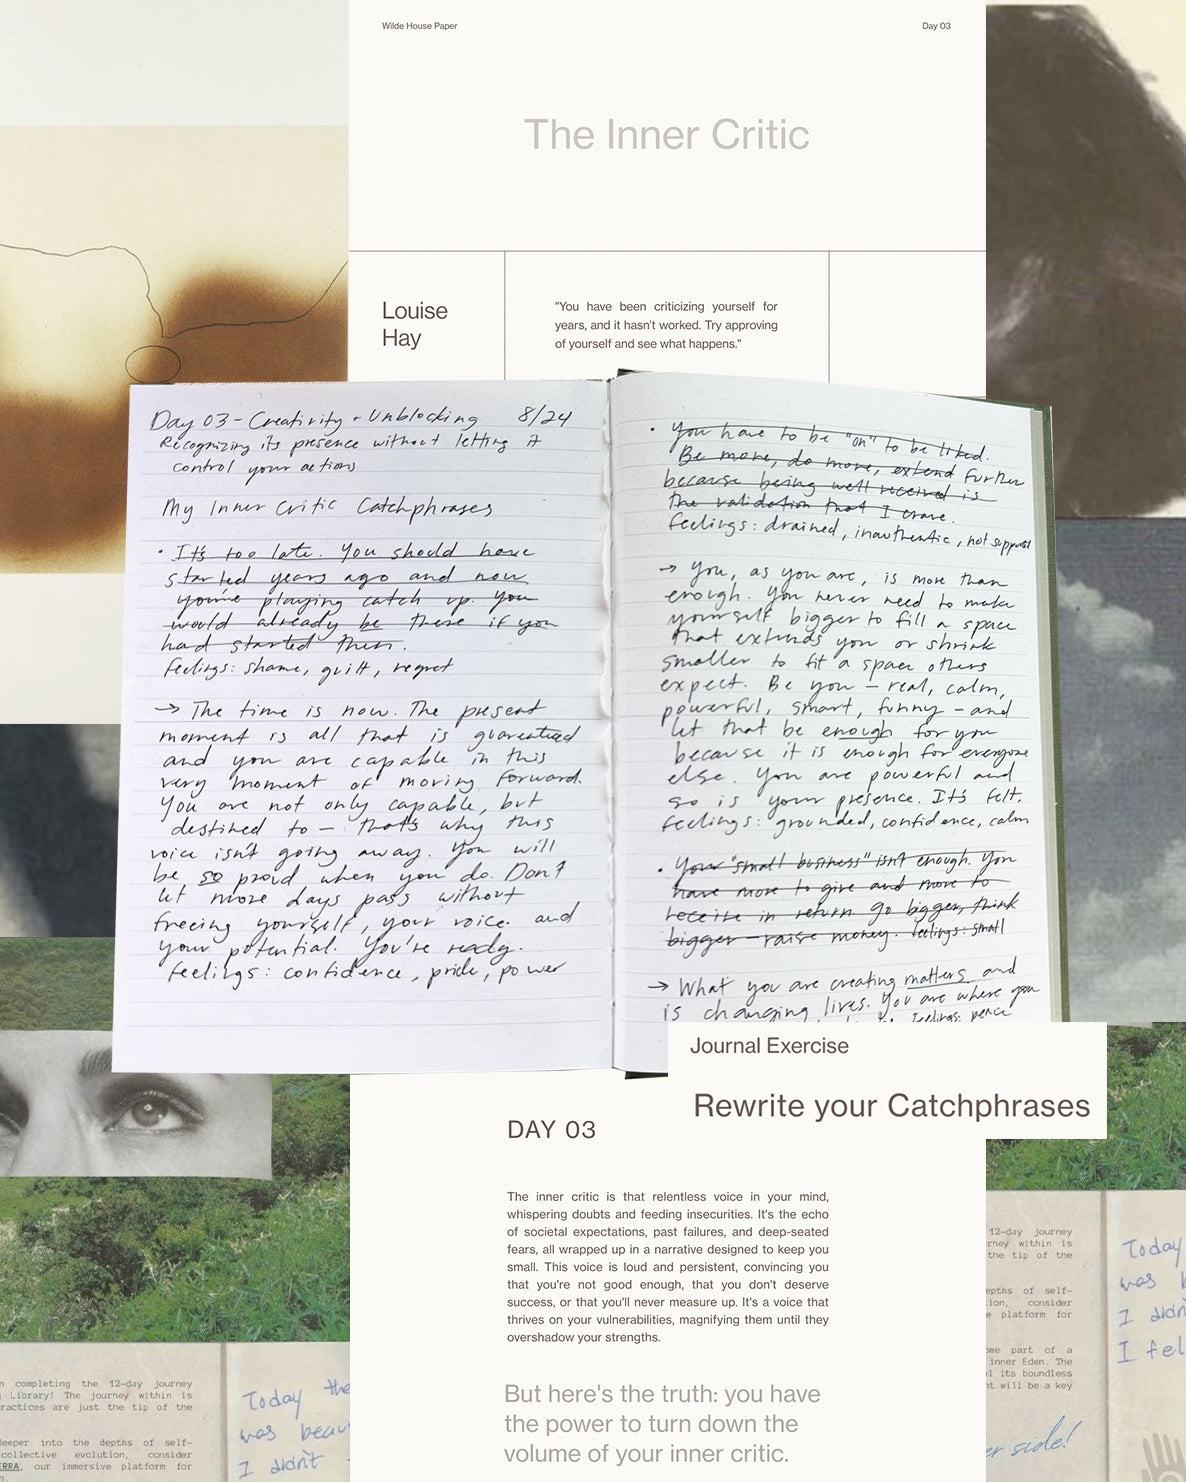 Wilde House Paper
Day 03
The Inner Critic
Louise
Hay
"You have been criticizing yourself for
years, and it hasn't worked. Try approving
of yourself and see what happens."
Day 03 - Creativity + Unblocking 8/24
Recognizing its presence without letting it
control your actions
My Inner Critic Catchphrases
• It's too late. You should have
started years ago and now
you're playing catch up. You
would already be there if you
had started then.
feelings: shame, guilt, regret
→ The time is now. The present
moment is all that is guaranteed
and you are capable in this
very moment of moving forward.
You are not only capable, but
destined to — that's why this
voice isn't going away. You will
be so proud when you do. Don't
let more days pass without
freeing yourself, your voice and
your potential. You're ready.
feelings: confidence, pride, power
• You have to be "on" to be liked.
Be more, do more, extend further
because being well received is
the validation that I crave.
feelings: drained, inauthentic, not support
→ You, as you are, is more than
enough. You never need to make
yourself bigger to fill a space
that extends you or shrink
smaller to fit a space others
expect. Be you — real, calm,
powerful, smart, funny — and
let that be enough for you
because it is enough for everyone
else. You are powerful and
so is your presence. It's felt.
feelings: grounded, confidence, calm
• Your "small business" isn't enough. You
have more to give and more to
receive in return. Go bigger, think
bigger — raise money. feelings: small
→ What you are creating matters and
is changing lives. You are where you
feelings: peace
Journal Exercise
Rewrite your Catchphrases
DAY 03
The inner critic is that relentless voice in your mind,
whispering doubts and feeding insecurities. It's the echo
of societal expectations, past failures, and deep-seated
fears, all wrapped up in a narrative designed to keep you
small. This voice is loud and persistent, convincing you
that you're not good enough, that you don't deserve
success, or that you'll never measure up. It's a voice that
thrives on your vulnerabilities, magnifying them until they
overshadow your strengths.
But here's the truth: you have
the power to turn down the
volume of your inner critic.
completing the 12-day journey
Library! The journey within is
ractices are just the tip of the
deeper into the depths of self-
collective evolution, consider
ERRA, our immersive platform for
Today the
was beau
I didn't
12-day journey
rney within is
the tip of the
epths of self-
ion, consider
platform for
ome part of a
inner Eden. The
its boundless
nt will be a key
er side!
Today
was b
I didn'
I feel